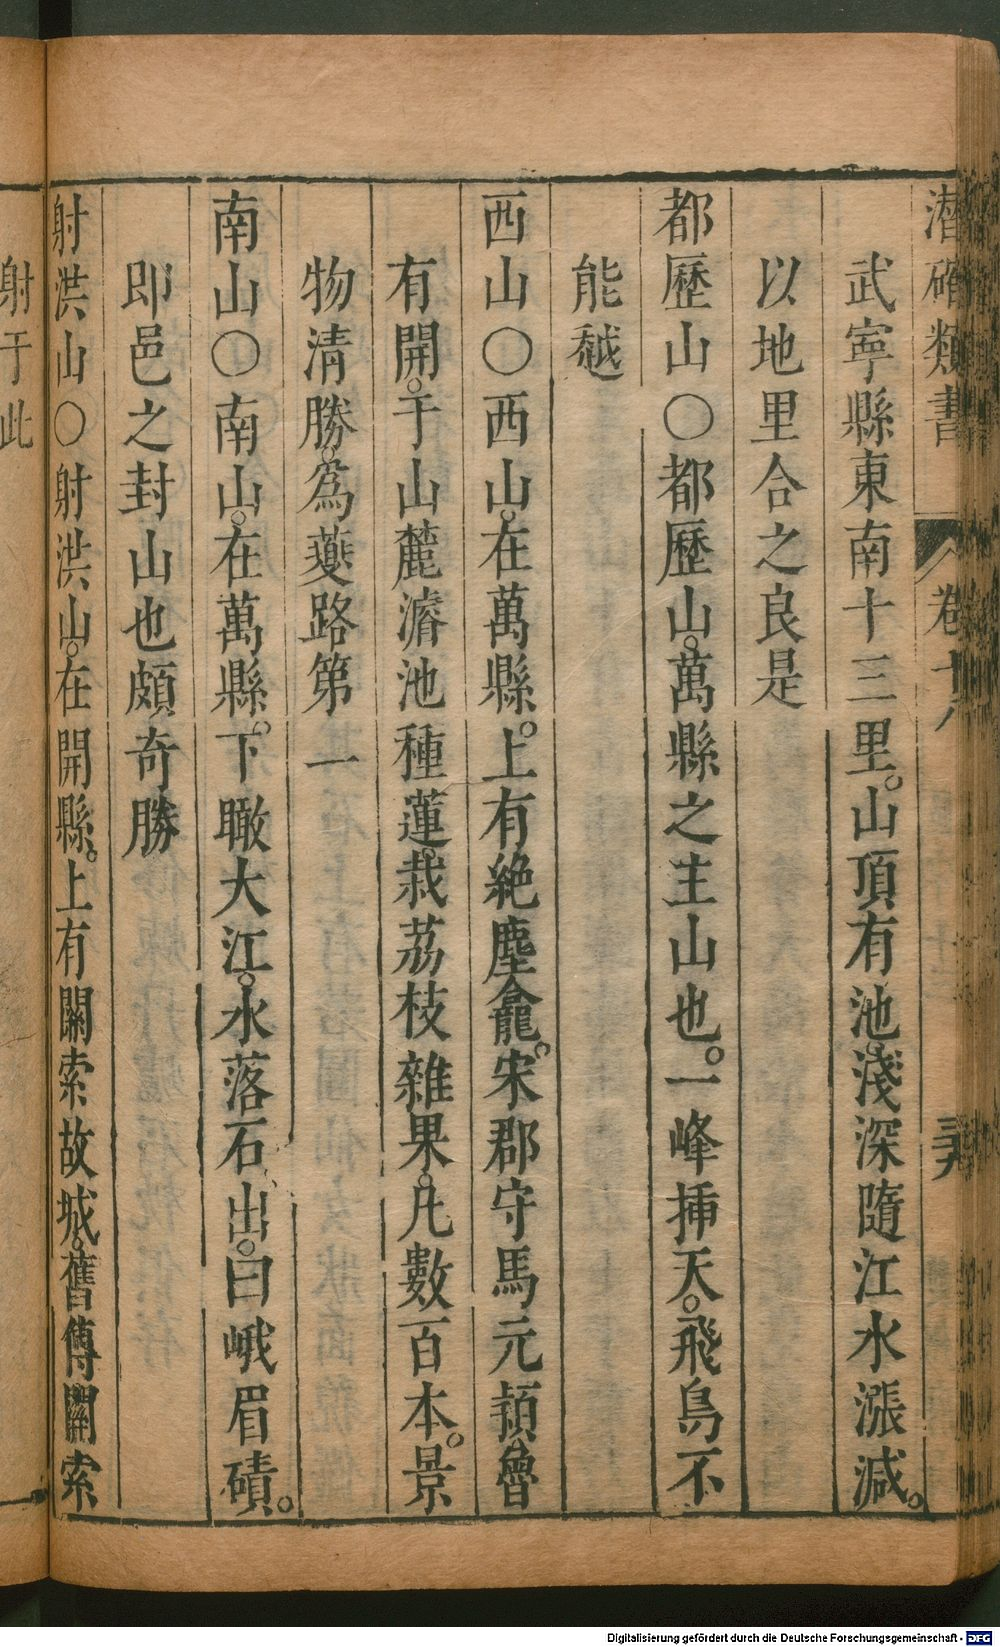 潛確類書 卷十八 三九
武寧縣東南十三里。山頂有池。淺深隨江水漲減。
以地里合之良是
都歷山○都歷山。萬縣之主山也。一峰挿天。飛鳥不
能越
西山○西山。在萬縣。上有絶塵龕。宋郡守馬元頴魯
有開。于山麓濬池種蓮。栽荔枝雜果。凡數百本。景
物清勝。爲夔路第一
南山○南山。在萬縣。下瞰大江。水落石出。曰峨眉磧。
即邑之封山也頗奇勝
射洪山○射洪山。在開縣。上有關索故城。舊傳關索
射于此
Digitalisierung gefördert durch die Deutsche Forschungsgemeinschaft - DFG